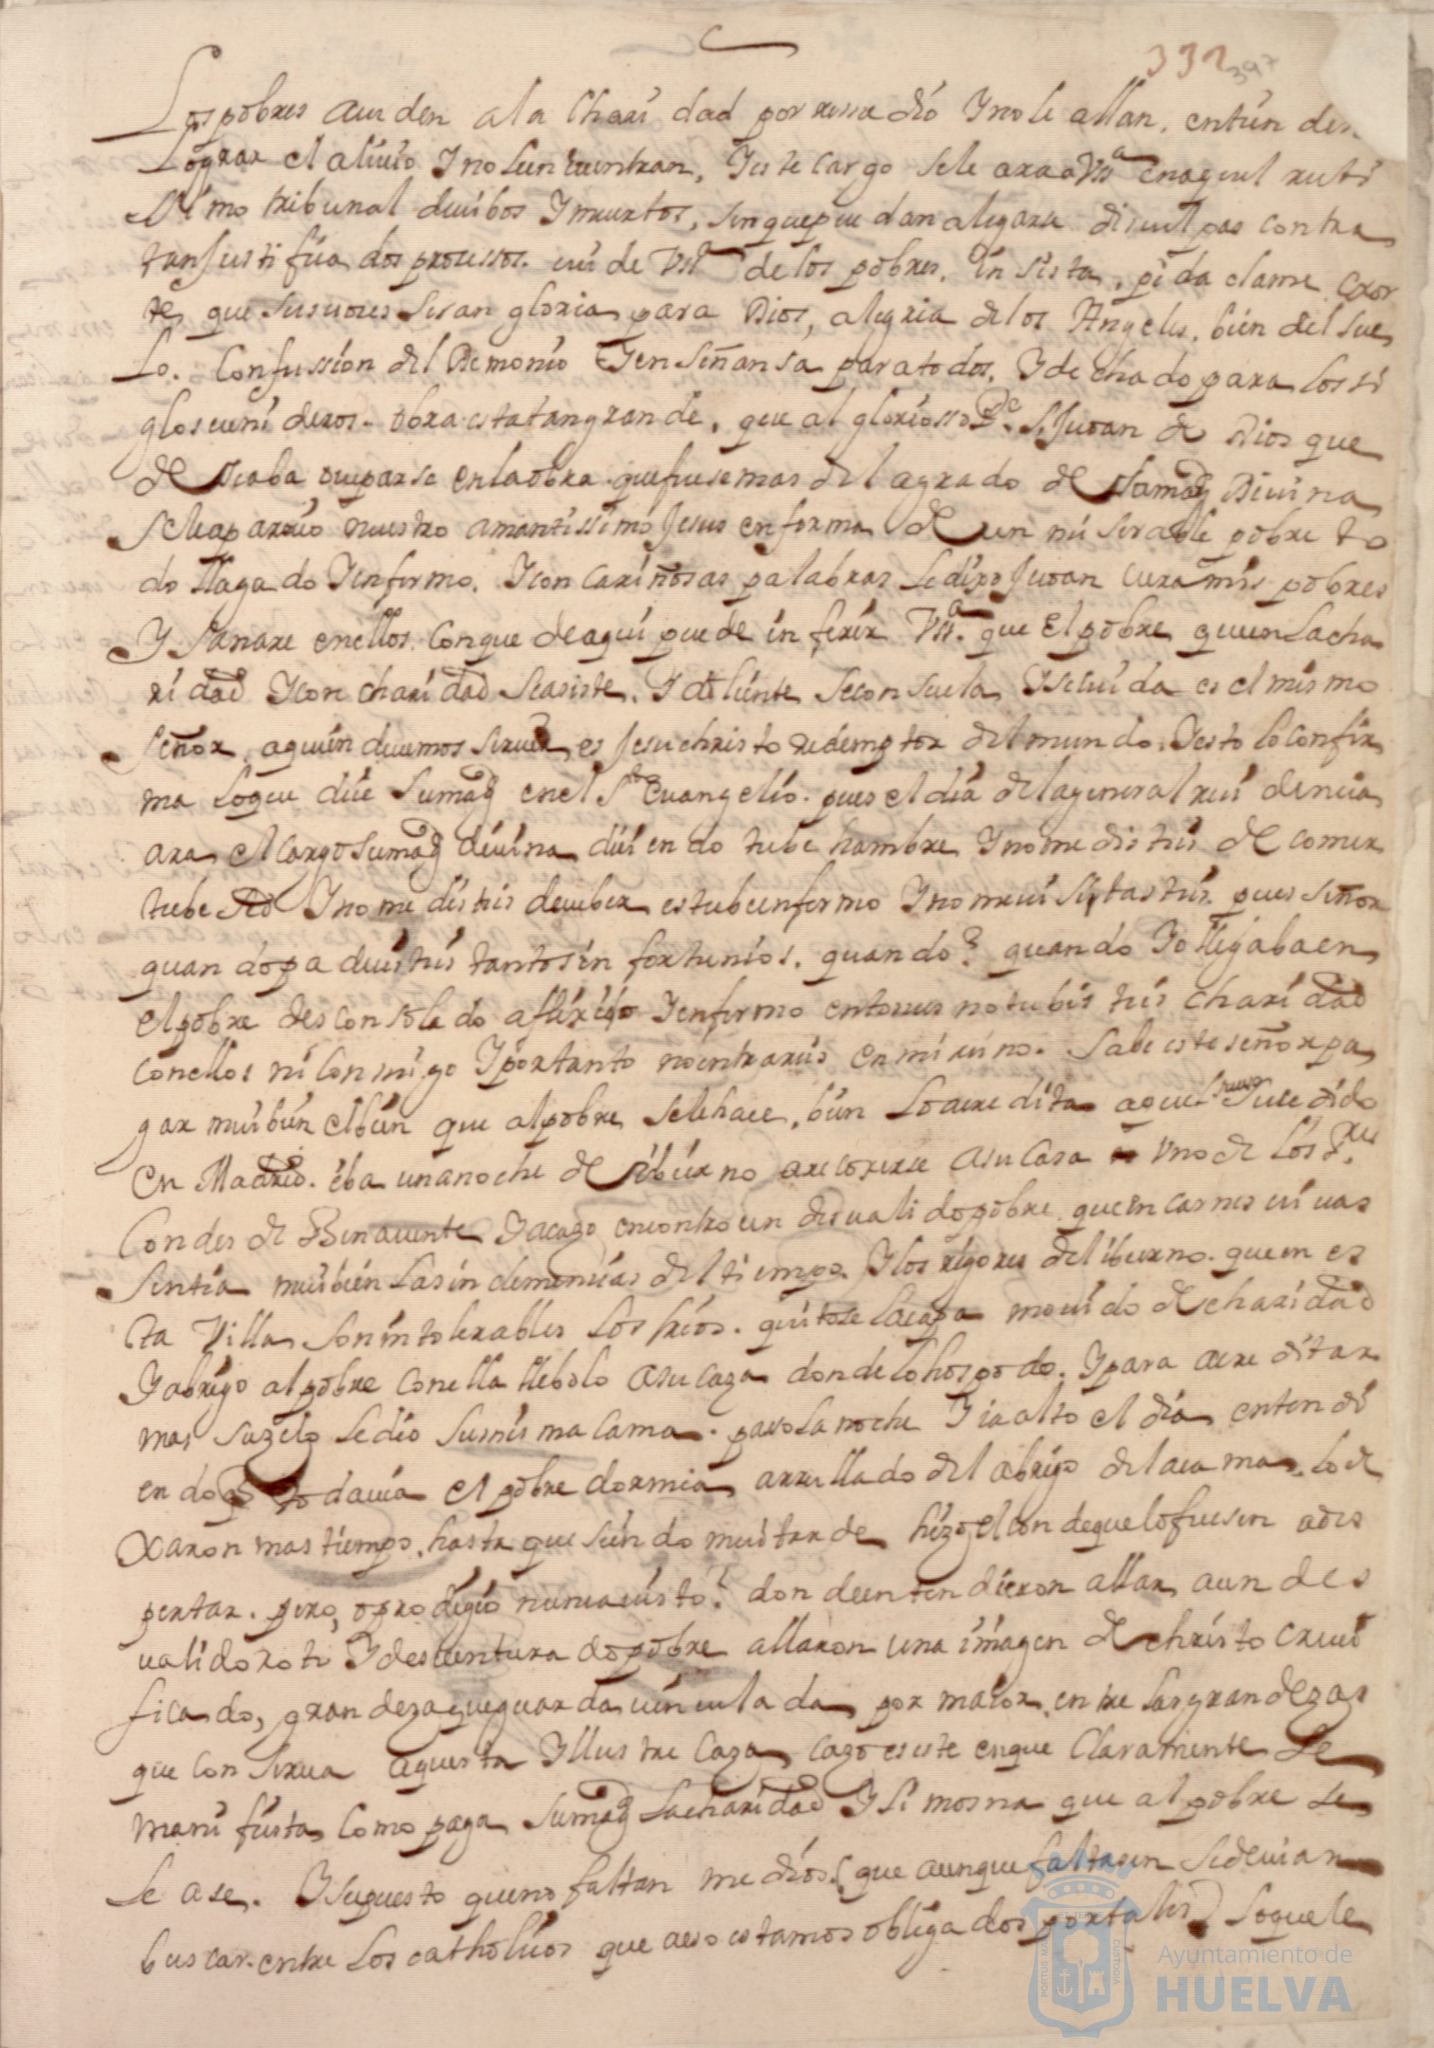 392 397
Los pobres acuden a la Charidad por nessesidió Y no le allan, entienden
Lograr el alivio Y no le encuentran, Y este cargo se le ara a Vsª en aquel recti
ssimo tribunal de vibos Y muertos, sin que puedan alegarse disculpas contra
tan justificados processos. cuide Vsª de los pobres, insista, pida clame exor
te, que sus voces seran gloria para Dios, alegria de los Angeles, bien del sue
Lo. Confussion del Demonio Y enseñansa para todos, Y dechado para los si
glos venideros. obra es ta tan grande, que al gloriosso Pe. S. Juan de Dios que
deseaba ocuparse en la obra que fuese mas del agrado de su magd Divina
se le aparecio nuestro amantissimo Jesus en forma de un miserable pobre to
do llagado Y enfermo. Y con cariñosas palabras le dixo Juan cura mis pobres
Y sanare en ellos. Con que de aqui puede inferir Vsª. que el pobre, quien la cha
ridad Y con charidad se asiste, Y doliente se consuela Y se cuida es el mismo
señor, a quien devemos servir es Jesuchristo redemptor del mundo. Y esto lo confir
ma lo que dice su magd en el Sto Evangelio. pues el dia de la general residencia
ara el cargo su magd divina diciendo tube hambre Y no me disteis de comer
tube sed Y no me disteis de veber, estube enfermo Y no me visitasteis. pues señor
quando padecisteis tantos infortunios. quando? quando Yo llegaba en
el pobre desconsolado afligido Y enfermo entonces no tubisteis charidad
con ellos ni conmigo Y por tanto no entrareis en mi reino. Sabe este señor pa
gar mui bien el bien que al pobre se le hace, bien lo acredita aquel caso sucedido
en Madrid. iba una noche de ibierno a recojerse a su casa uno de los Sres
Condes de Benavente Y acazo encontro un desvalido pobre que en carnes vivas
sentia mui bien las inclemencias del tiempo Y los rigores del ibierno. que en es
ta Villa son intolerables los frios. quitose la capa movido de charidad
Y abrigo al pobre con ella llebolo a su caza donde lo hospedo. Y para acreditar
mas su zelo le dio su misma cama. paso la noche Y ia alto el dia entendi
endo q todavia el pobre dormia, arrullado del abrigo de la cama, lo de
xaron mas tiempo, hasta que siendo mui tarde hizo el conde que lo fuesen a des
pertar. pero, o prodigio nunca visto! donde entendieron allar, aun des
valido roto Y desventurado pobre allaron una imagen de christo cruci
ficado, grandeza que guarda vinculada por maior, entre las grandezas
que conserva aquesta Yllustre Caza, cazo es este en que Claramente se
manifiesta como paga su magd la charidad Y limosna que al pobre se
le ase. Y supuesto que no faltan medios (que aunque faltasen se devian
buscar entre los catholicos que a eso estamos obligados por tales) lo que le
Ayuntamiento de
HUELVA